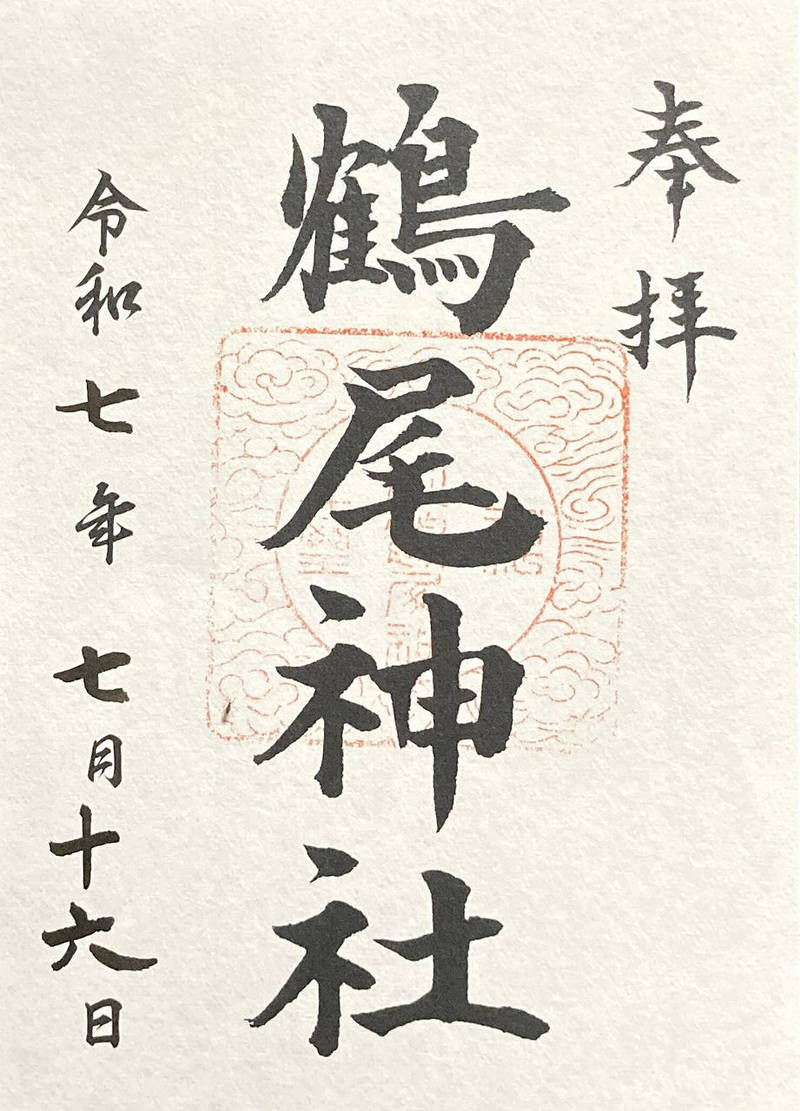 奉拝
鶴尾神社
令和七年七月十六日